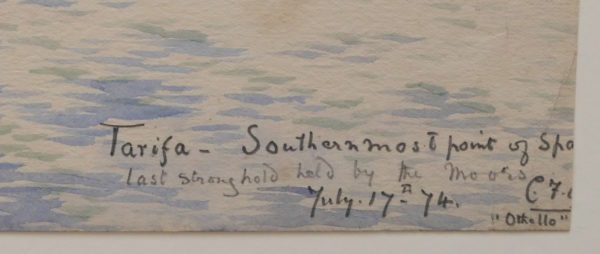 Tarifa - Southernmost point of Spa
last stronghold held by the Moors
July. 17th 74.
"Othello"